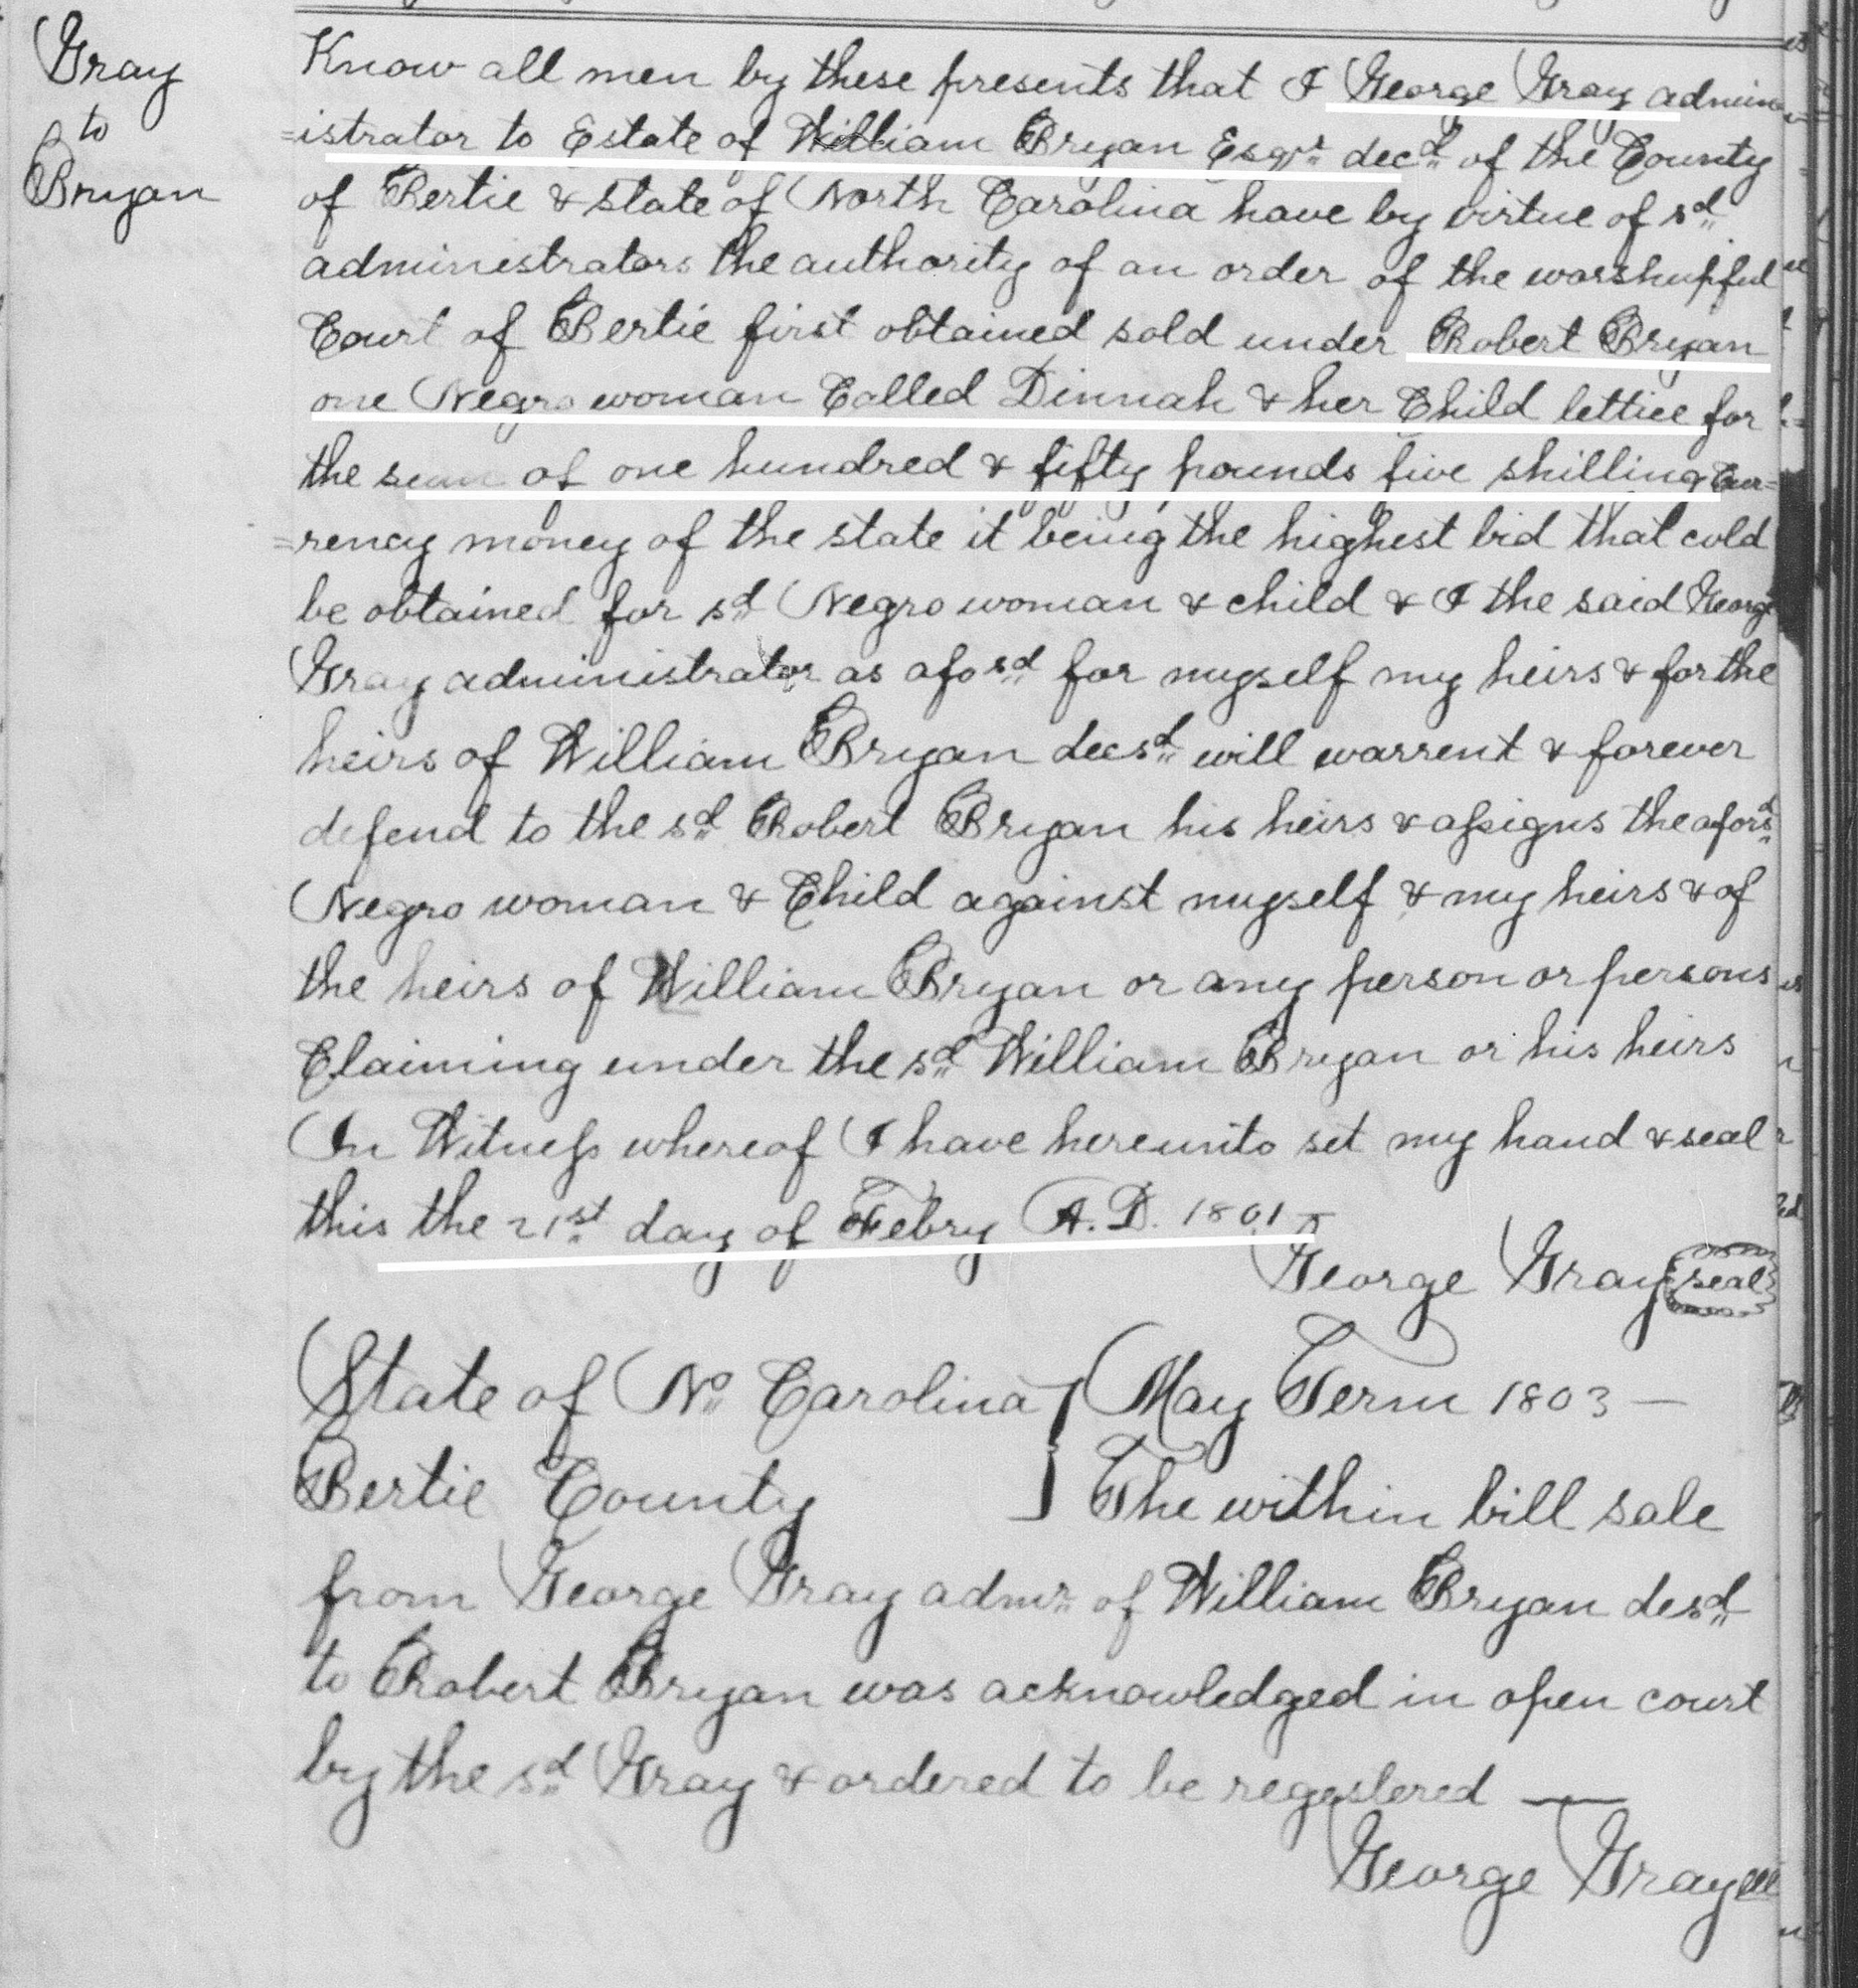 Gray
to
Bryan
Know all men by these presents that I George Gray admin
=istrator to Estate of William Bryan Esqr. decd. of the County
of Bertie & state of North Carolina have by virtue of sd.
administrators the authority of an order of the worshupful
Court of Bertie first obtained sold under Robert Bryan
one Negro woman Called Dinnah & her Child lettice for
the sum of one hundred & fifty pounds five shilling Cur=
=rency money of the state it being the highest bid that cold
be obtained for sd. Negro woman & child & I the said George
Gray administrator as afosd. for myself my heirs & for the
heirs of William Bryan decsd. will warrent & forever
defend to the sd. Robert Bryan his heirs & assigns the aforsd.
Negro woman & Child against myself & my heirs & of
the heirs of William Bryan or any person or persons
Claiming under the sd. William Bryan or his heirs
In Witness whereof I have hereunto set my hand & seal
this the 21st. day of Febry A.D. 1801 –
George Gray seal
State of No. Carolina } May Term 1803 —
Bertie County } The within bill sale
from George Gray admr. of William Bryan desd.
to Robert Bryan was acknowledged in open court
by the sd. Gray & ordered to be regestered —
George Gray